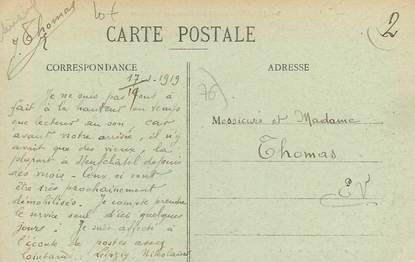 lot
J. Thomas
2
CARTE POSTALE
CORRESPONDANCE
ADRESSE
17-1-1919
19
76
Je ne suis pas tout à
fait à la hauteur en temps
que lecteur au son car
avant notre arrivée, il n'y
avait que des vieux, la
plupart à Neufchatel depuis
des mois - Ceux ci vont
être très prochainement
démobilisés. Je compte prendre
le service seul d'ici quelques
jours. Je suis affecté à
l'écoute de postes assez
lointains: Leipzig Nikolaiew
Messieurs et Madame
Thomas
EV